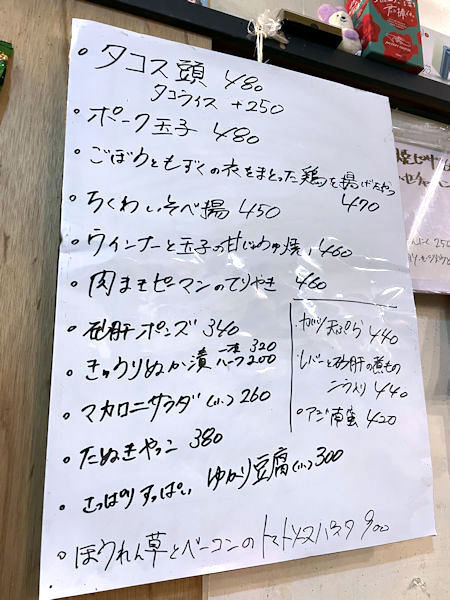 ・タコス頭 480
タコライス +250
・ポーク玉子 480
・ごぼうともずくの衣をまとった鶏を揚げたやつ 470
・ちくわいそべ揚 450
・ウインナーと玉子の甘じょうゆ焼 460
・肉まきピーマンのてりやき 460
・砂肝ポンズ 340
・きゅうりぬか漬 一本 320
ハーフ 200
・マカロニサラダ(小) 260
・たぬきやっこ 380
・さっぱりすっぱい ゆかり豆腐(小) 300
・ほうれん草とベーコンのトマトソースパスタ 900
・ガツ天ぷら 440
・レバーと砂肝の煮もの
440
・アジ南蛮 420